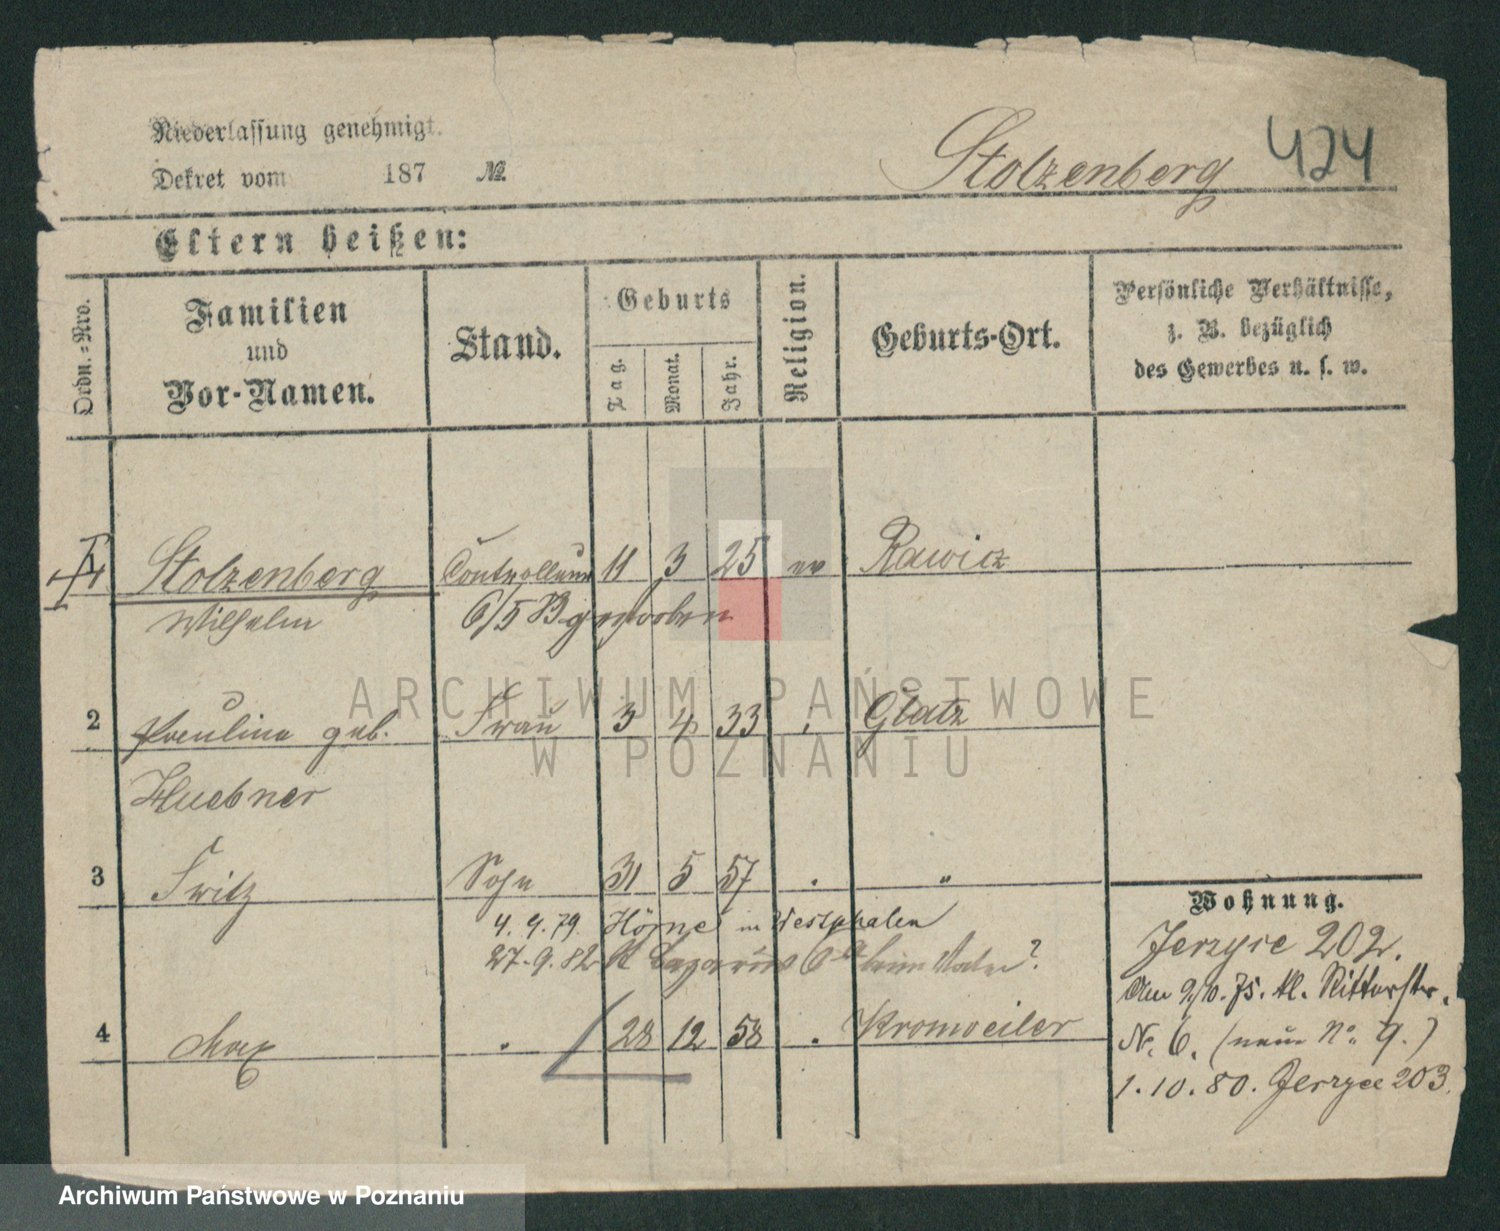 Niederlassung genehmigt.
Dekret vom 187 №.
Stolzenberg 424
Eltern heißen:
Ordn.-Nro.
Familien
und
Vor-Namen.
Stand.
Geburts
Tag.
Monat.
Jahr.
Religion.
Geburts-Ort.
Persönliche Verhältnisse,
z. B. bezüglich
des Gewerbes u. s. w.
1 Stolzenberg Controlleur 11 3 25 ev Rawicz
Wilhelm 6/5 gestorben
2 Pauline geb. Frau 3 4 33 Glatz
Huebner
3 Fritz Sohn 31 5 57 "
4. 9. 79. Hörne in Westphalen
27.9.82 St Lazarus beim Vater?
4 Max 28 12 58 Kronweiler
Wohnung.
Jerzyce 202.
Am 9/10. 75. kl. Ritterstr.
Nr. 6. (neue No. 9.)
1.10.80. Jerzyce 203.
ARCHIWUM PAŃSTWOWE
W POZNANIU
Archiwum Państwowe w Poznaniu